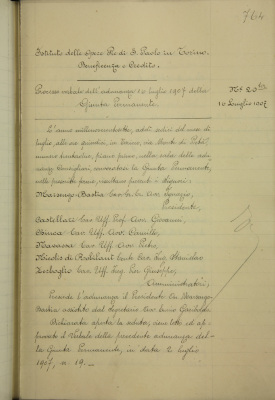 764
Istituto delle Opere Pie di S. Paolo in Torino
Beneficenza e Credito.
Processo verbale dell'adunanza 10 luglio 1907 della
Giunta Permanente.
N° 20
10 Luglio 1907
L'anno millenovecentosette, addì dieci del mese di
luglio, alle ore quindici, in Torino, via Monte di Pietà,
numero trentadue, piano primo, nella sala delle adu-
nanze Consigliari, convocatasi la Giunta Permanente,
nelle persone sono, risultano presenti i Signori:
Marsengo-Bastia Ignazio,
Presidente,
Castellari Cav. Uff. Prof. Avv. Giovanni,
Chinea Cav. Uff. Avv.
Cav. Uff. Avv. Pietro,
Nicolis di Robilant Conte Cav. Ing. Stanislao
Zerboglio Cav. Uff. Ing. Giuseppe,
Amministratori;
l'adunanza il Presidente Marsengo
Bastia assistito dal Segretario Cav.
Dichiarata aperta la seduta, letto ed ap-
provato il Verbale della precedente adunanza del-
la Giunta Permanente, in data 2 luglio
1907, n. 19.